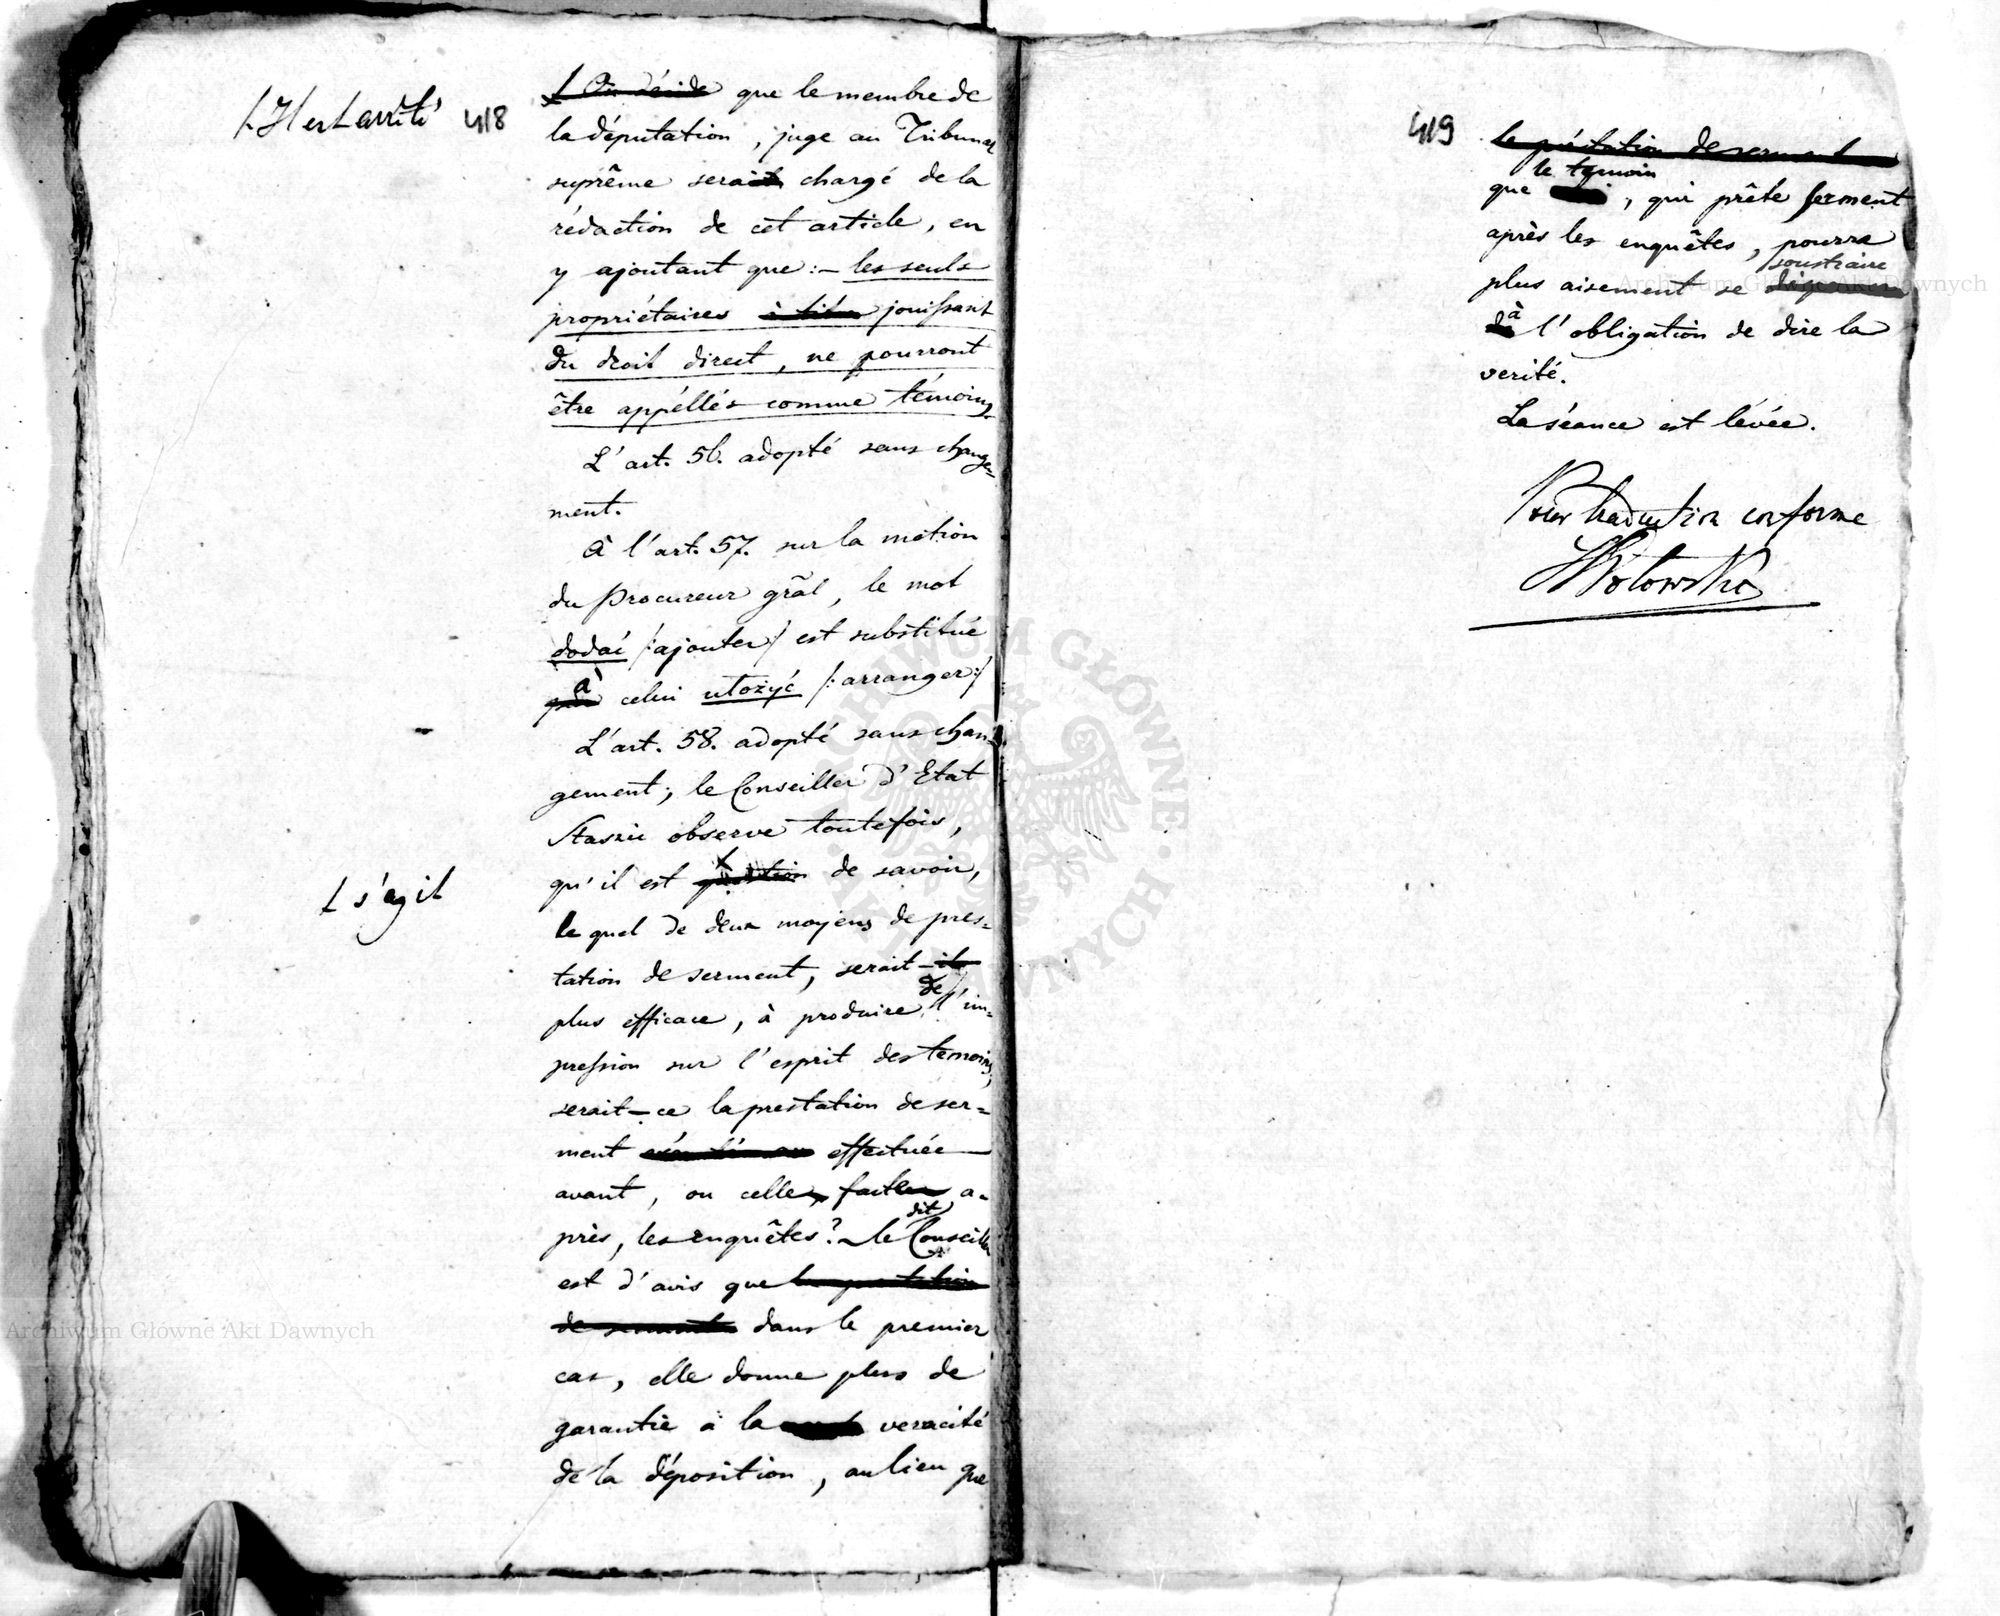 Il est arrêté
418
On décide que le membre de
la députation, juge au Tribunal
suprême serait chargé de la
rédaction de cet article, en
y ajoutant que :- les seuls
propriétaires à titre jouissant
du droit direct, ne pourront
être appéllés comme témoins
L'art. 56. adopté sans change=
ment.
à l'art. 57. sur la motion
du Procureur grãl, le mot
dodać /:ajouter/ est substitué
à
celui ułożyć /:arranger:/
L'art. 58. adopté sans chan=
gement; le Conseiller d'Etat
Staszic observe toutefois,
qu'il est question de savoir,
s'agit
le quel de deux moyens de pres=
tation de serment, serait-il
de
plus efficace, à produire l'im=
pression sur l'esprit des temoins,
serait-ce la prestation de ser=
ment effectuée
avant, ou celle, faite a-
dit
près, les enquêtes? - le Conseiller
est d'avis que la prestation
de serment dans le premier
cas, elle donne plus de
garantie à la veracité
de la déposition, au lieu que
419
la préstation de serment
le temoin
que , qui prête serment
après les enquêtes, pourra
soustraire
plus aisement se
à
de l'obligation de dire la
verité.
La séance est lévée.
Pour traduction conforme
Wołowski
Archiwum Główne Akt Dawnych
Archiwum Główne Akt Dawnych
ARCHIWUM GŁÓWNE AKT DAWNYCH